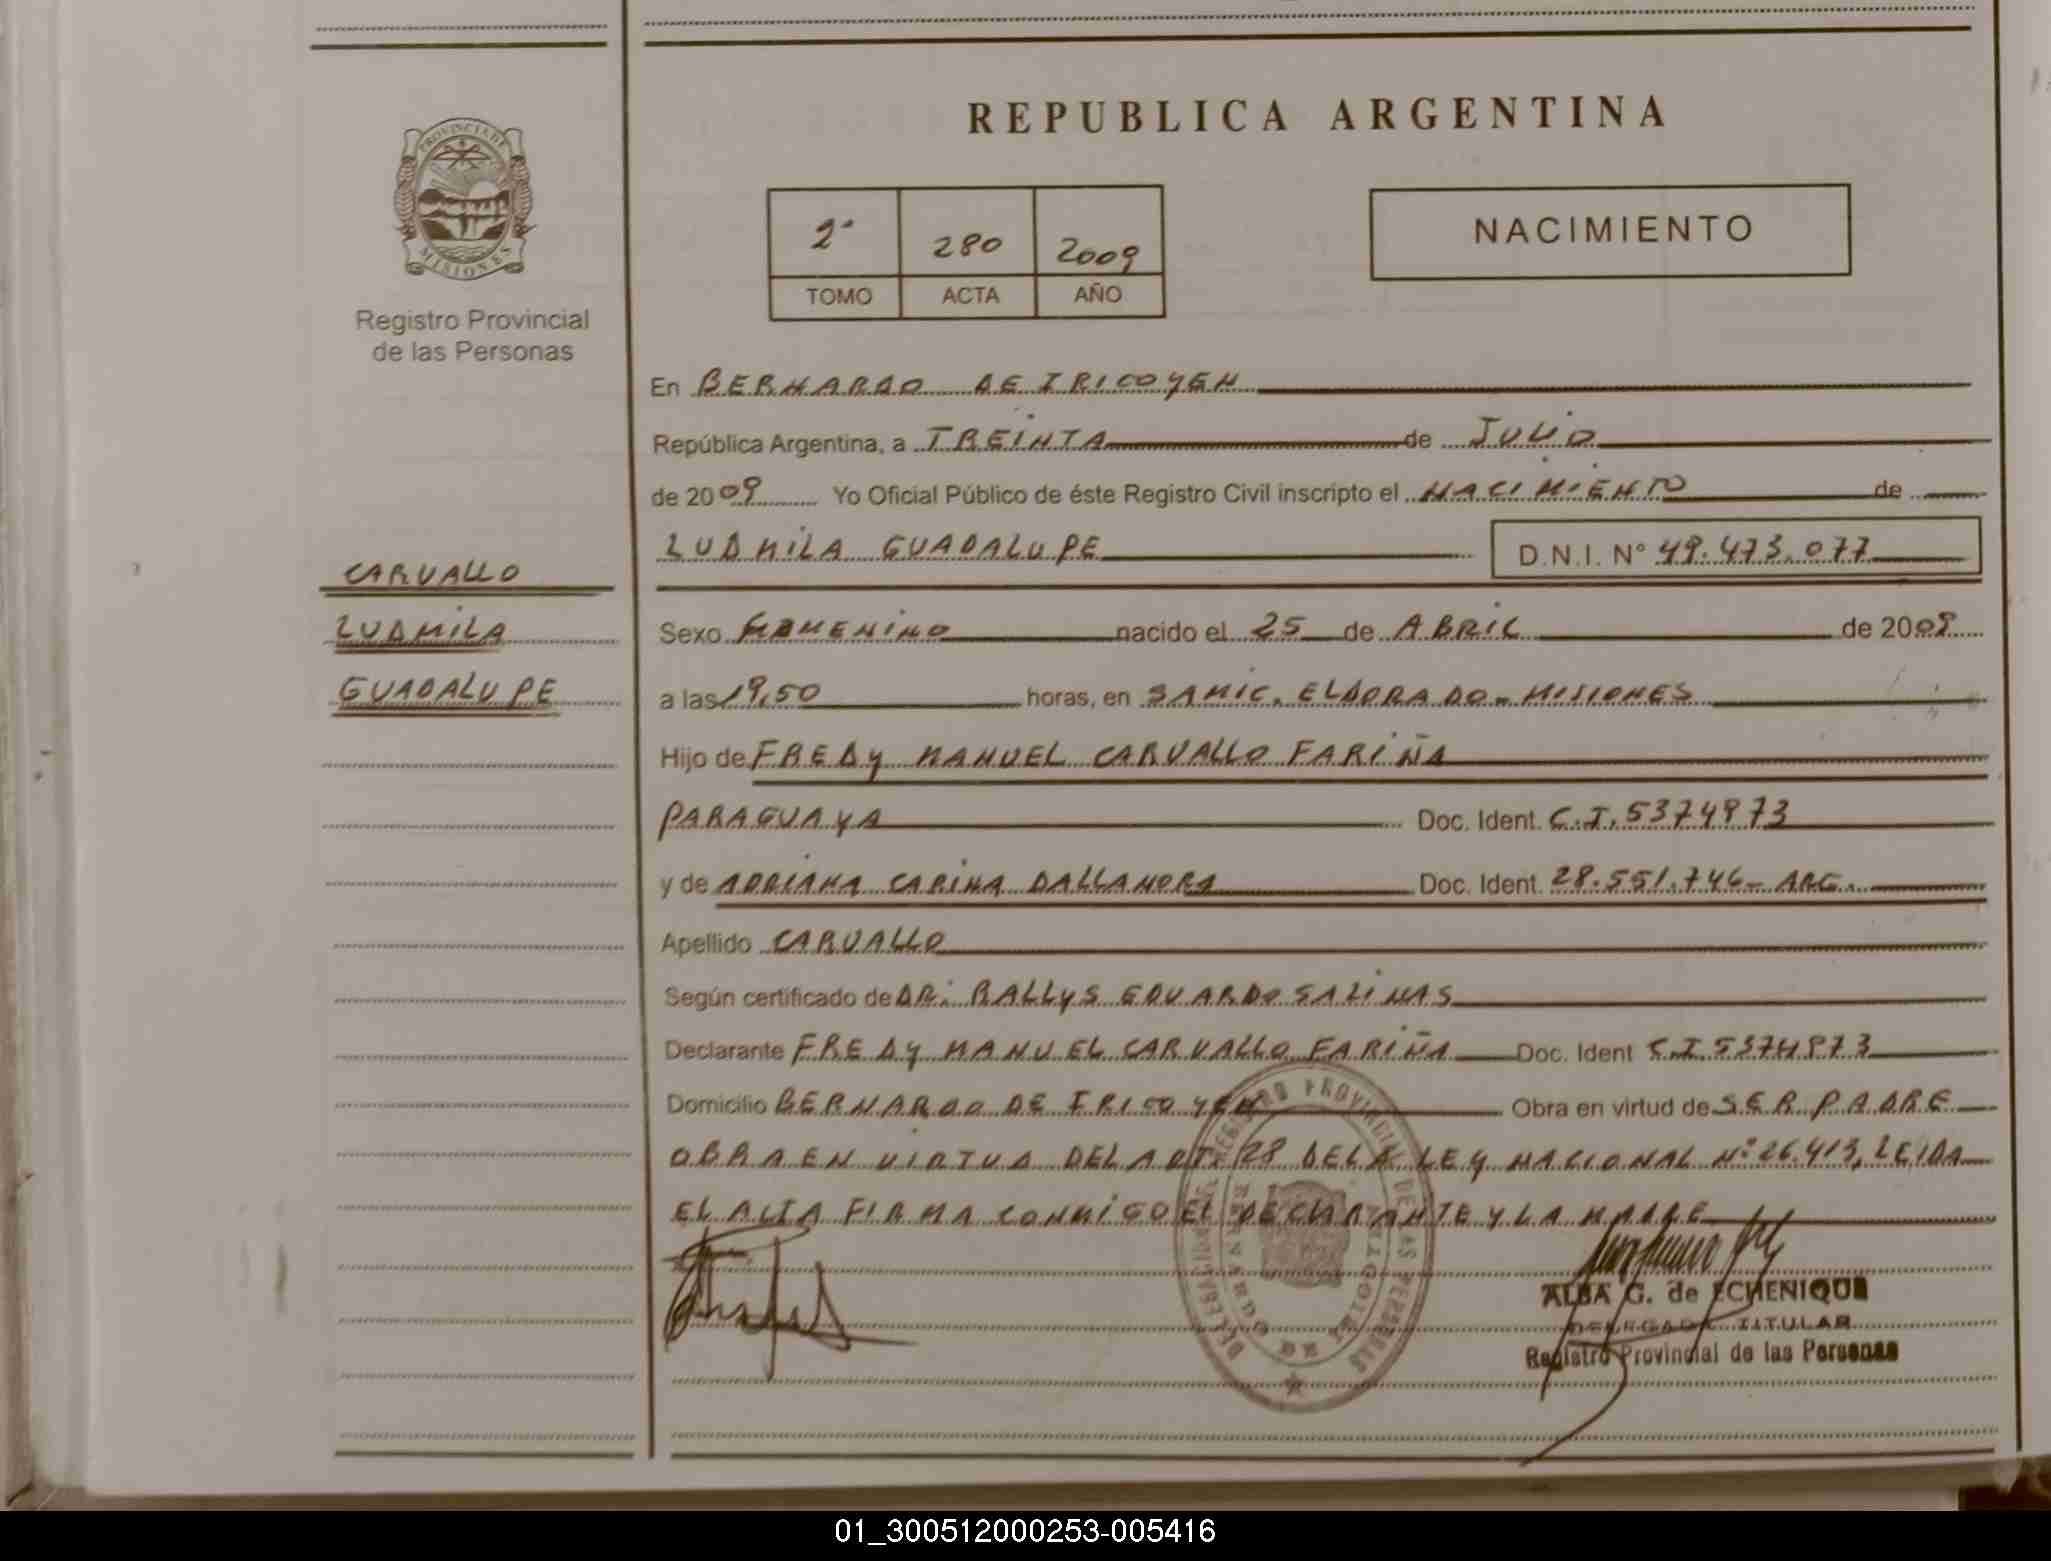 REPUBLICA ARGENTINA
PROVINCIA DE
MISIONES
Registro Provincial
de las Personas
2ª 280 2009
TOMO ACTA AÑO
NACIMIENTO
En BERNARDO DE IRIGOYEN
República Argentina, a TREINTA de JULIO
de 2009 Yo Oficial Público de éste Registro Civil inscripto el NACIMIENTO de
LUDMILA GUADALUPE D.N.I. Nº 49.473.077
CARVALLO
LUDMILA
GUADALUPE
Sexo FEMENINO nacido el 25 de ABRIL de 2009
a las 19,50 horas, en SAMIC. ELDORADO - MISIONES
Hijo de FREDY MANUEL CARVALLO FARIÑA
PARAGUAYA Doc. Ident. C.I. 5374973
y de ADRIANA CARINA DALLANORA Doc. Ident. 28.551.746 - ARG.
Apellido CARVALLO
Según certificado de DR. RALLYS EDUARDO SALINAS
Declarante FREDY MANUEL CARVALLO FARIÑA Doc. Ident C.I. 5374973
Domicilio BERNARDO DE IRIGOYEN Obra en virtud de SER PADRE
OBRA EN VIRTUD DEL ART. 28 DE LA LEY NACIONAL Nº 26.413, LEIDA
EL ACTA FIRMA CONMIGO EL DECLARANTE Y LA MADRE
ALBA G. de ECHENIQUE
DELEGADA TITULAR
Registro Provincial de las Personas
01_300512000253-005416